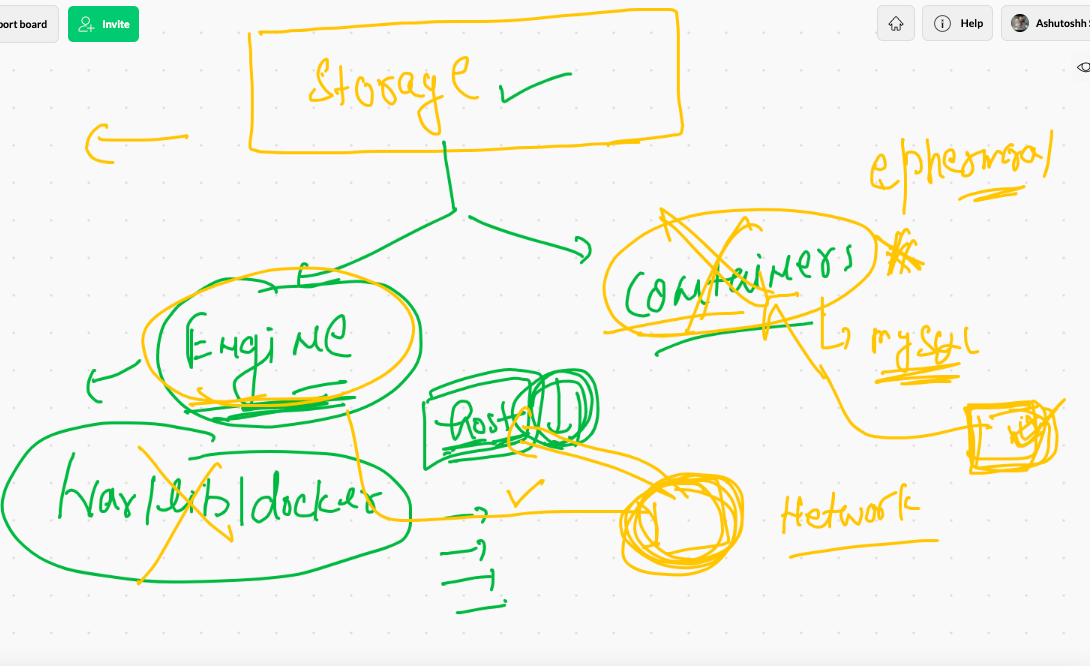 port board
Invite
Help
Ashutoshh
Storage
ephermral
Containers
mysql
Engine
host
/var/lib/docker
Network